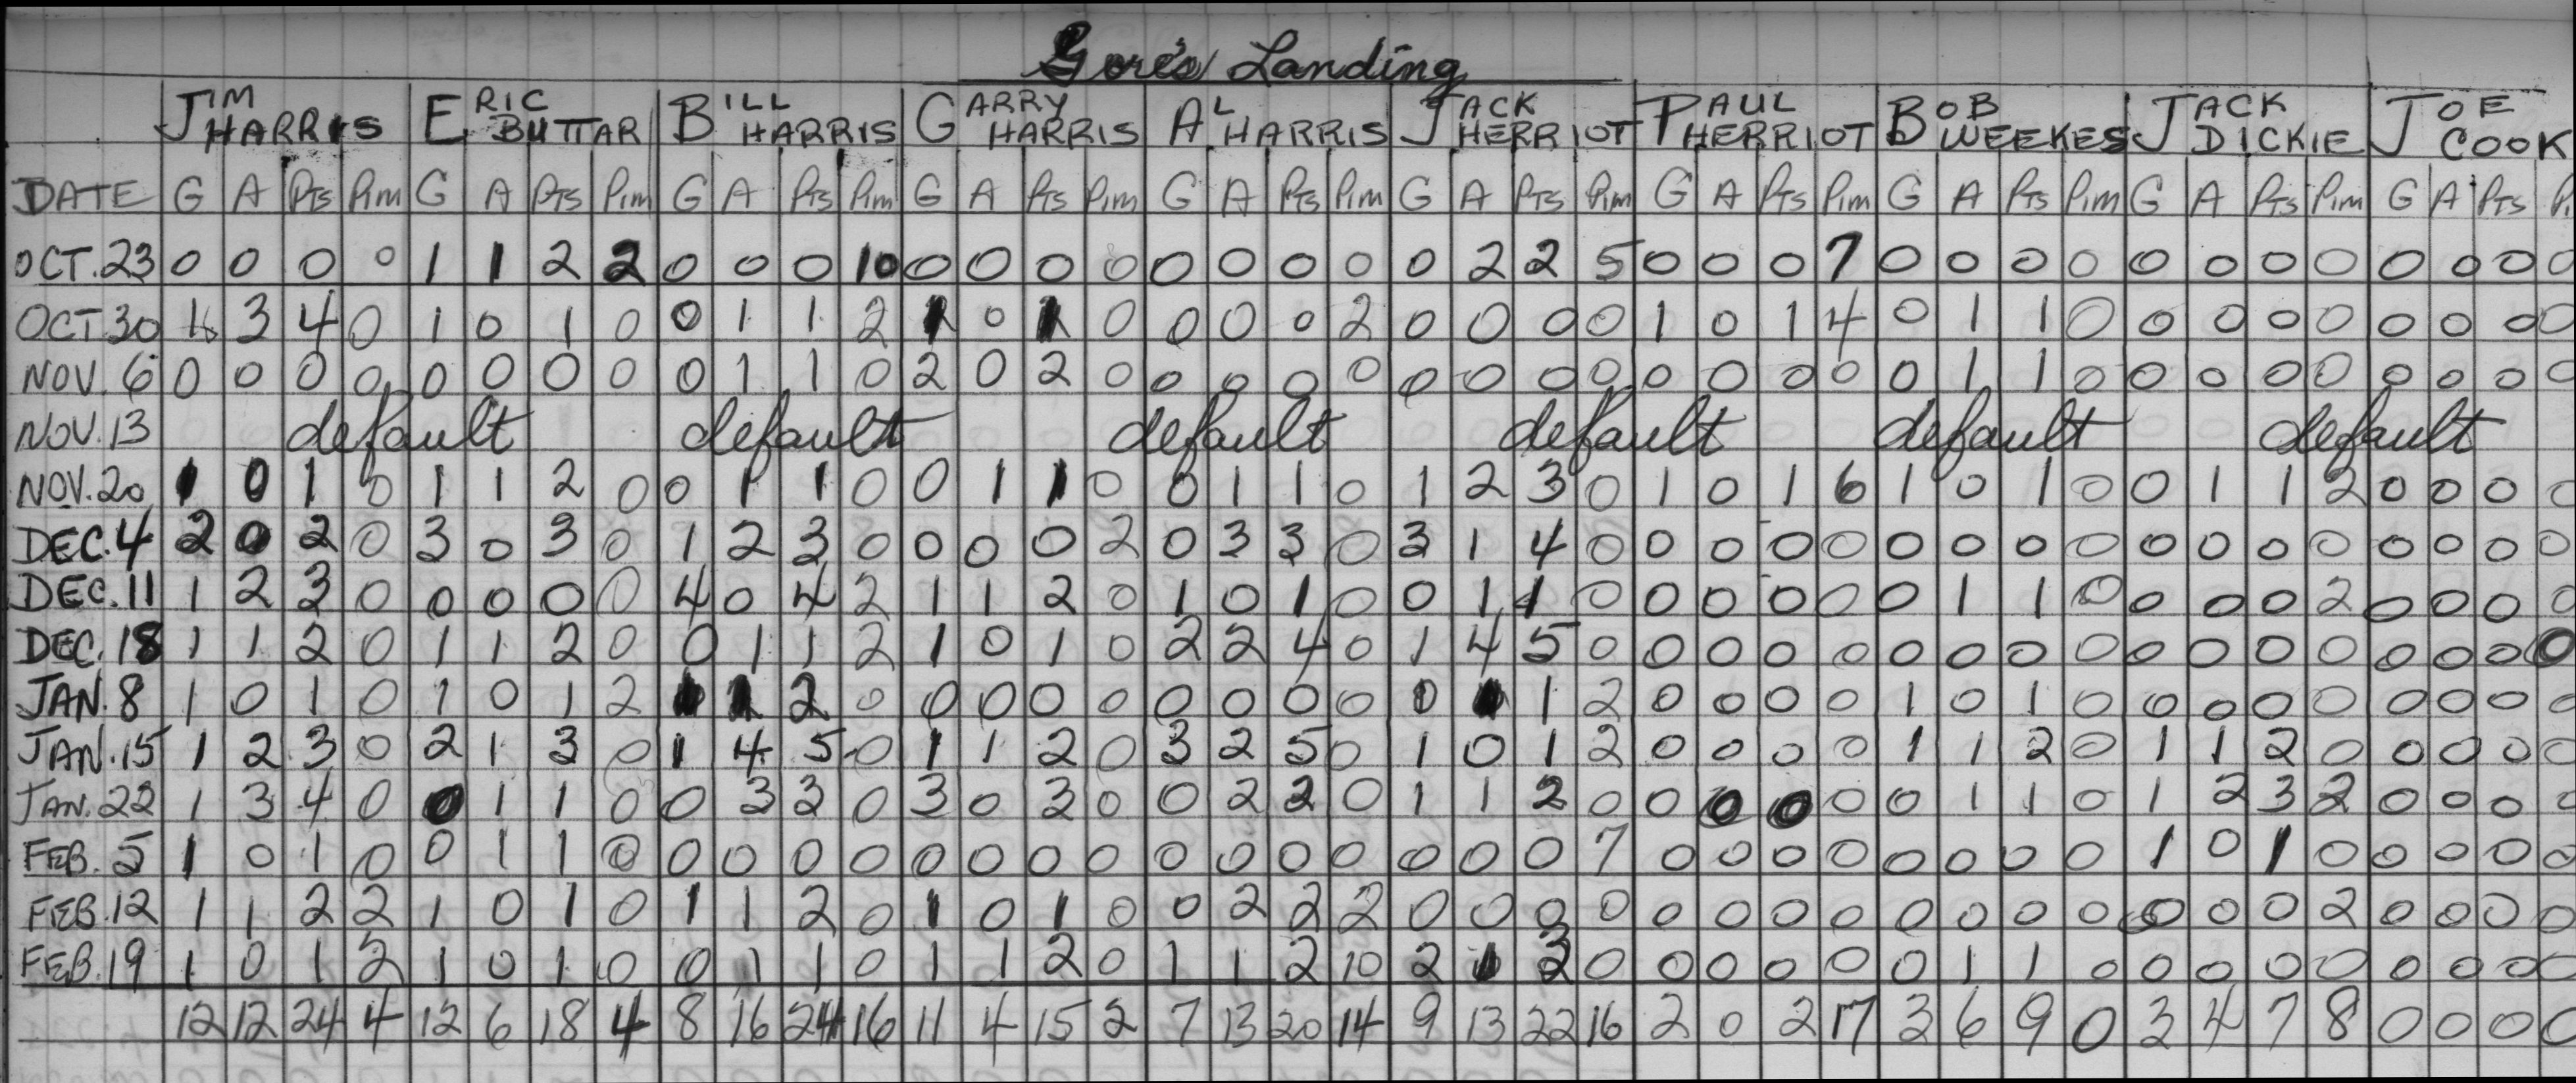 Gore's Landing
JIM HARRIS ERIC BUTTAR BILL HARRIS GARRY HARRIS AL HARRIS JACK HERRIOT PAUL HERRIOT BOB WEEKES JACK DICKIE JOE COOK
DATE G A Pts Pim G A Pts Pim G A Pts Pim G A Pts Pim G A Pts Pim G A Pts Pim G A Pts Pim G A Pts Pim G A Pts Pim G A Pts
OCT.23 0 0 0 0 1 1 2 2 0 0 0 10 0 0 0 0 0 0 0 0 0 2 2 5 0 0 0 7 0 0 0 0 0 0 0 0 0 0 0 0
OCT 30 1 3 4 0 1 0 1 0 0 1 1 2 1 0 1 0 0 0 0 2 0 0 0 0 1 0 1 4 0 1 1 0 0 0 0 0 0 0 0 0
NOV. 6 0 0 0 0 0 0 0 0 0 1 1 0 2 0 2 0 0 0 0 0 0 0 0 0 0 0 0 0 0 1 1 0 0 0 0 0 0 0 0 0
NOV. 13 default default default default default default
NOV. 20 1 0 1 0 1 1 2 0 0 1 1 0 0 1 1 0 0 1 1 0 1 2 3 0 1 0 1 6 1 0 1 0 0 1 1 2 0 0 0 0
DEC. 4 2 0 2 0 3 0 3 0 1 2 3 0 0 0 0 2 0 3 3 0 3 1 4 0 0 0 0 0 0 0 0 0 0 0 0 0 0 0 0 0
DEC. 11 1 2 3 0 0 0 0 0 4 0 4 2 1 1 2 0 1 0 1 0 0 1 1 0 0 0 0 0 0 1 1 0 0 0 0 2 0 0 0 0
DEC. 18 1 1 2 0 1 1 2 0 0 1 1 2 1 0 1 0 2 2 4 0 1 4 5 0 0 0 0 0 0 0 0 0 0 0 0 0 0 0 0 0
JAN. 8 1 0 1 0 1 0 1 2 1 1 2 0 0 0 0 0 0 0 0 0 0 1 1 2 0 0 0 0 1 0 1 0 0 0 0 0 0 0 0 0
JAN. 15 1 2 3 0 2 1 3 0 1 4 5 0 1 1 2 0 3 2 5 0 1 0 1 2 0 0 0 0 1 1 2 0 1 1 2 0 0 0 0 0
JAN. 22 1 3 4 0 0 1 1 0 0 3 3 0 3 0 3 0 0 2 2 0 1 1 2 0 0 0 0 0 0 1 1 0 1 2 3 2 0 0 0 0
FEB. 5 1 0 1 0 0 1 1 0 0 0 0 0 0 0 0 0 0 0 0 0 0 0 0 7 0 0 0 0 0 0 0 0 1 0 1 0 0 0 0 0
FEB. 12 1 1 2 2 1 0 1 0 1 1 2 0 1 0 1 0 0 2 2 2 0 0 0 0 0 0 0 0 0 0 0 0 0 0 0 2 0 0 0 0
FEB. 19 1 0 1 2 1 0 1 0 0 1 1 0 1 1 2 0 1 1 2 10 2 1 3 0 0 0 0 0 0 1 1 0 0 0 0 0 0 0 0 0
12 12 24 4 12 6 18 4 8 16 24 16 11 4 15 2 7 13 20 14 9 13 22 16 2 0 2 17 3 6 9 0 3 4 7 8 0 0 0 0